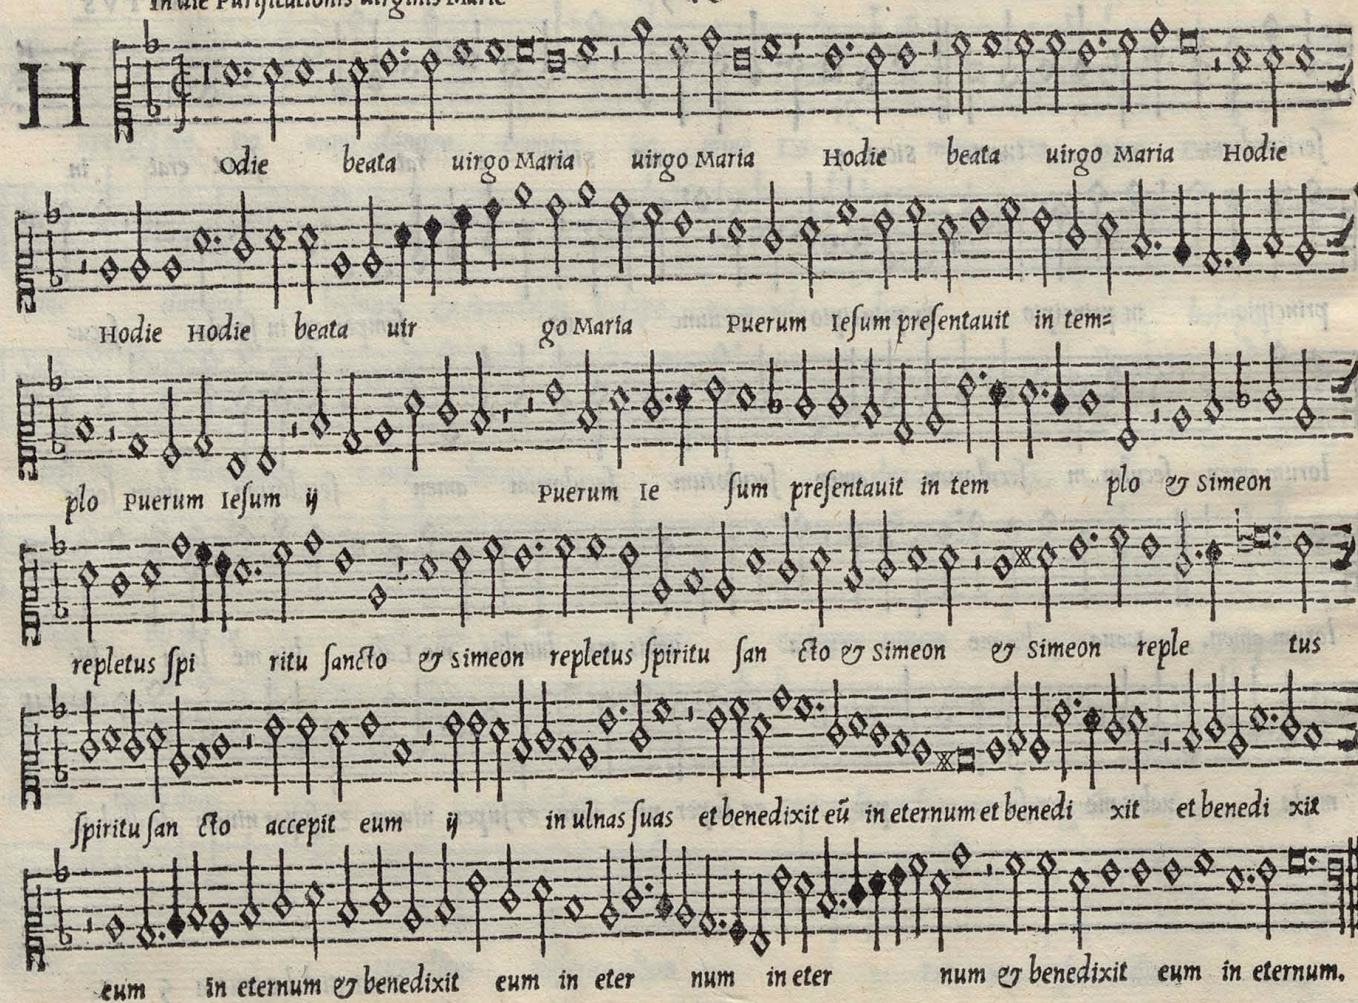 In die Purificationis uirginis Marie
HOdie beata uirgo Maria uirgo Maria Hodie beata uirgo Maria Hodie
Hodie Hodie beata uir go Maria Puerum Ieſum preſentauit in tem=
plo Puerum Ieſum ij Puerum Ie ſum preſentauit in tem plo & Simeon
repletus ſpi ritu ſancto & Simeon repletus ſpiritu ſan cto & Simeon & Simeon reple tus
ſpiritu ſan cto accepit eum ij in ulnas ſuas et benedixit eũ in eternum et benedi xit et benedi xit
eum in eternum & benedixit eum in eter num in eter num & benedixit eum in eternum.